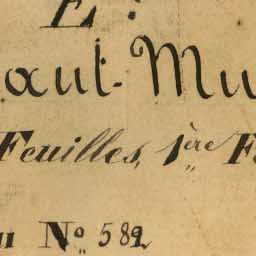 E :
aut-Mu
Feuilles, 1ère F
u N° 589